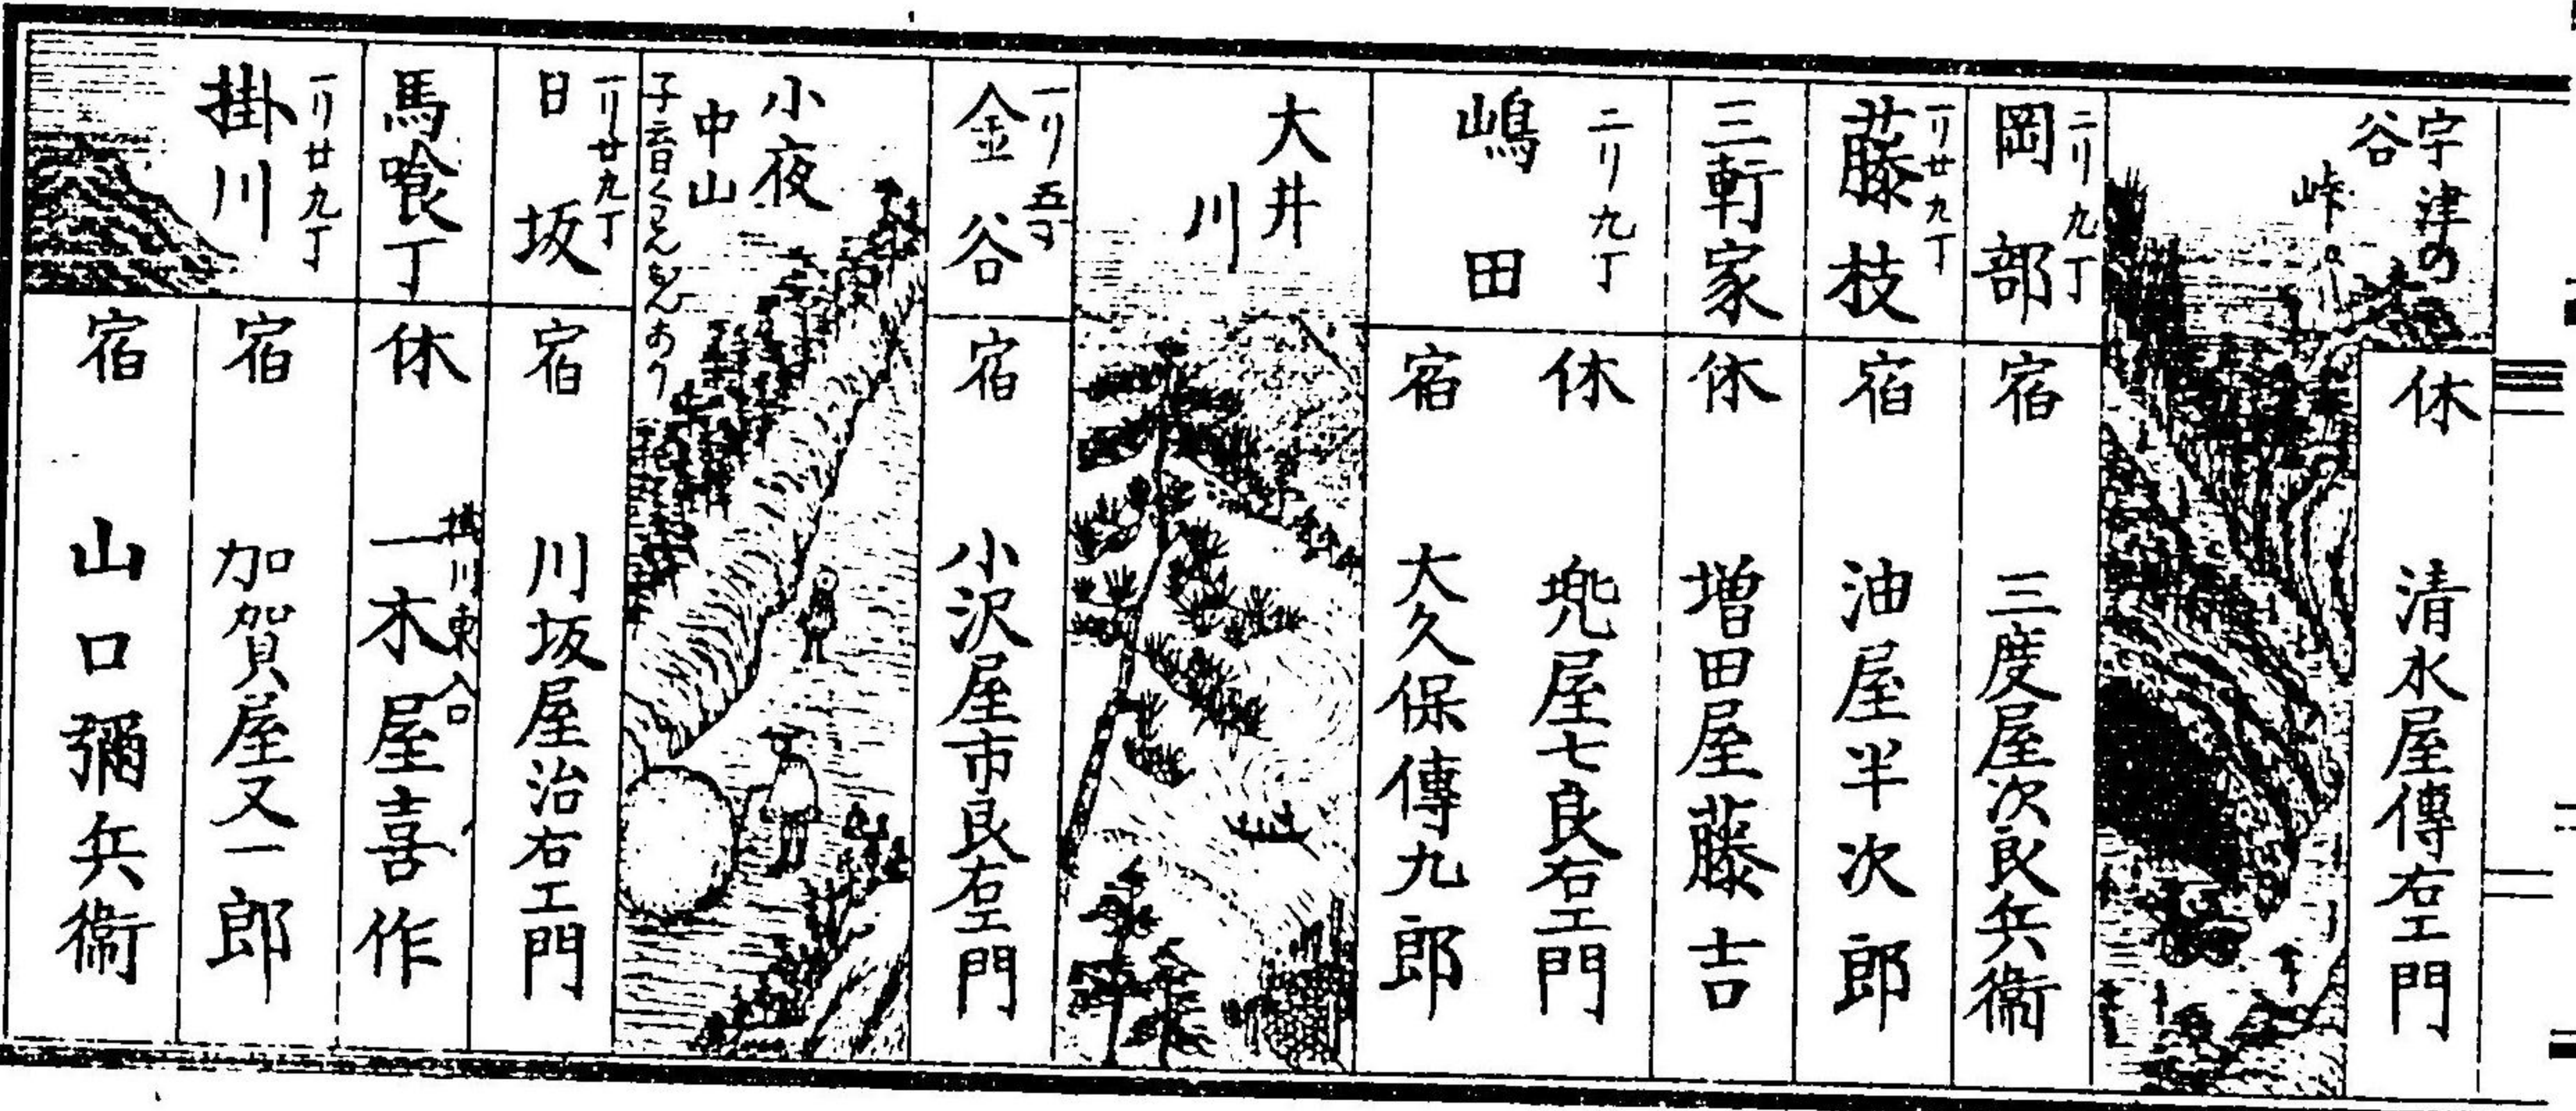 宇津の
谷
峠
休 清水屋傳右エ門
二リ九丁
岡部
宿 三度屋次良兵衞
一リ廿九丁
藤枝
宿 油屋半次郎
三軒家
休 増田屋藤吉
二リ九丁
嶋田
休 兠屋七良右エ門
宿 大久保傳九郎
大井
川
一リ
金谷
宿 小沢屋市良右エ門
小夜
中山
子 あり
一リ廿九丁
日坂
宿 川坂屋治右エ門
馬喰丁
休 掛川東入口
一木屋喜作
一リ廿九丁
掛川
宿 加賀屋又一郎
宿 山口彌兵衞